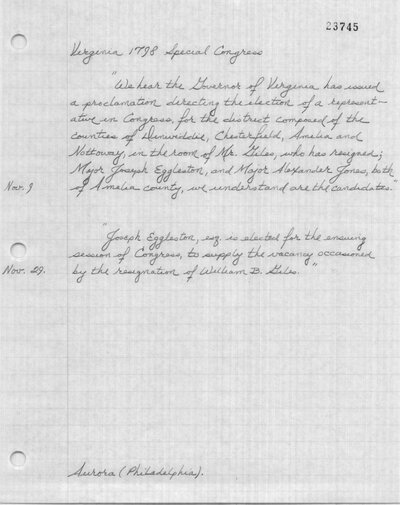 23745
Virginia 1798 Special Congress
"We hear the Governor of Virginia has issued
a proclamation directing the election of a represent-
ative in Congress, for the district composed of the
counties of Dinwiddie, Chesterfield, Amelia and
Nottoway, in the room of Mr. Giles, who has resigned;
Major Joseph Eggleston, and Major Alexander Jones, both
Nov. 9 of Amelia county, we understand are the candidates."
"Joseph Eggleston, esq. is elected for the ensuing
session of Congress, to supply the vacancy occasioned
Nov. 29. by the resignation of William B. Giles."
Aurora (Philadelphia).